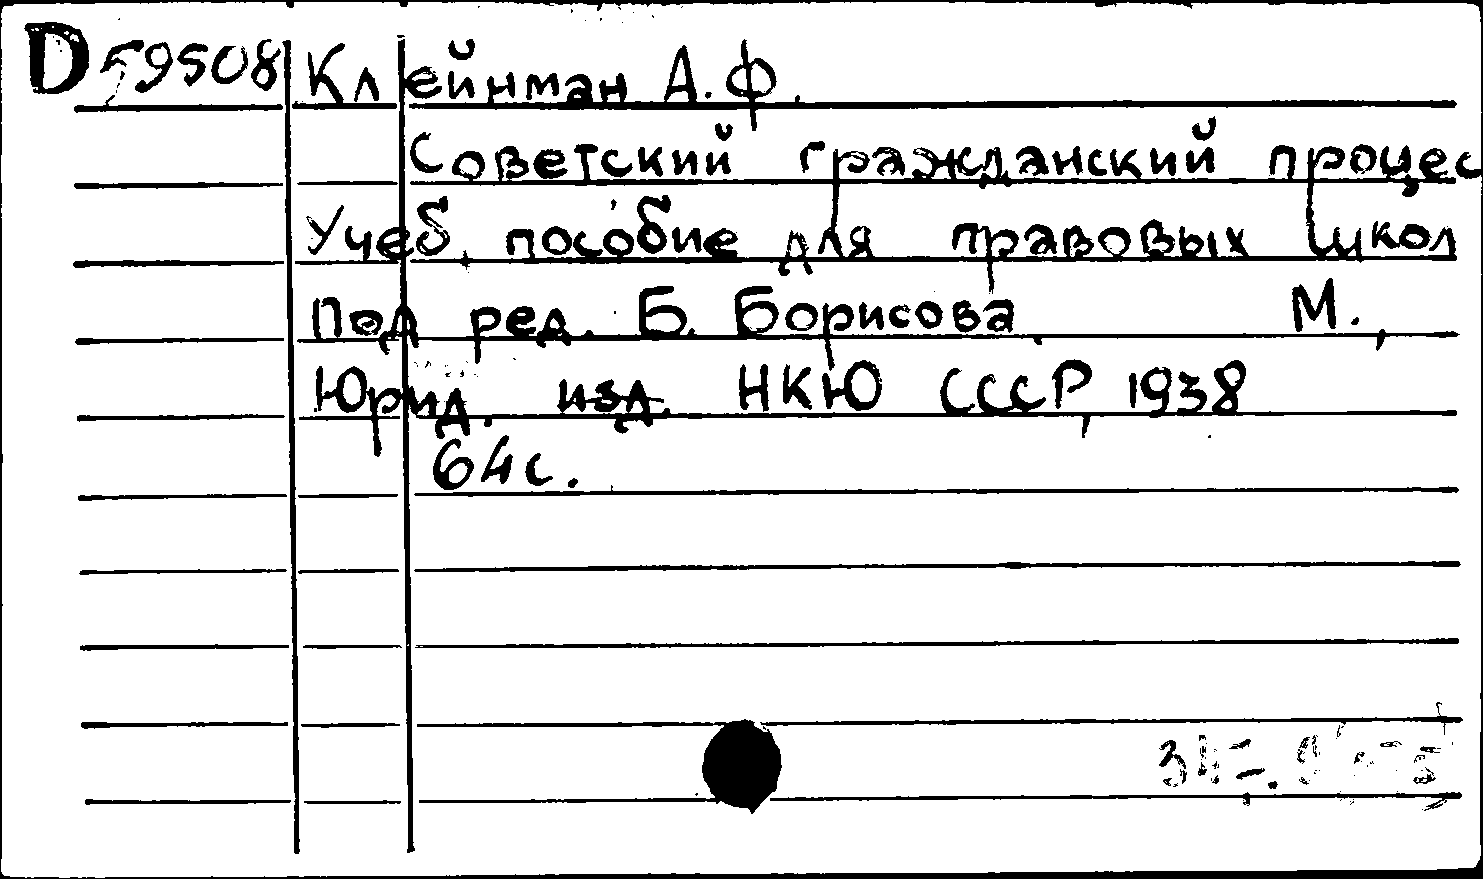 D 59508 Клейнман А.Ф.
Советский гражданский процес
Учеб. пособие для правовых школ
Под ред. Б. Борисова М.,
Юрид. изд. НКЮ СССР, 1938
64с.